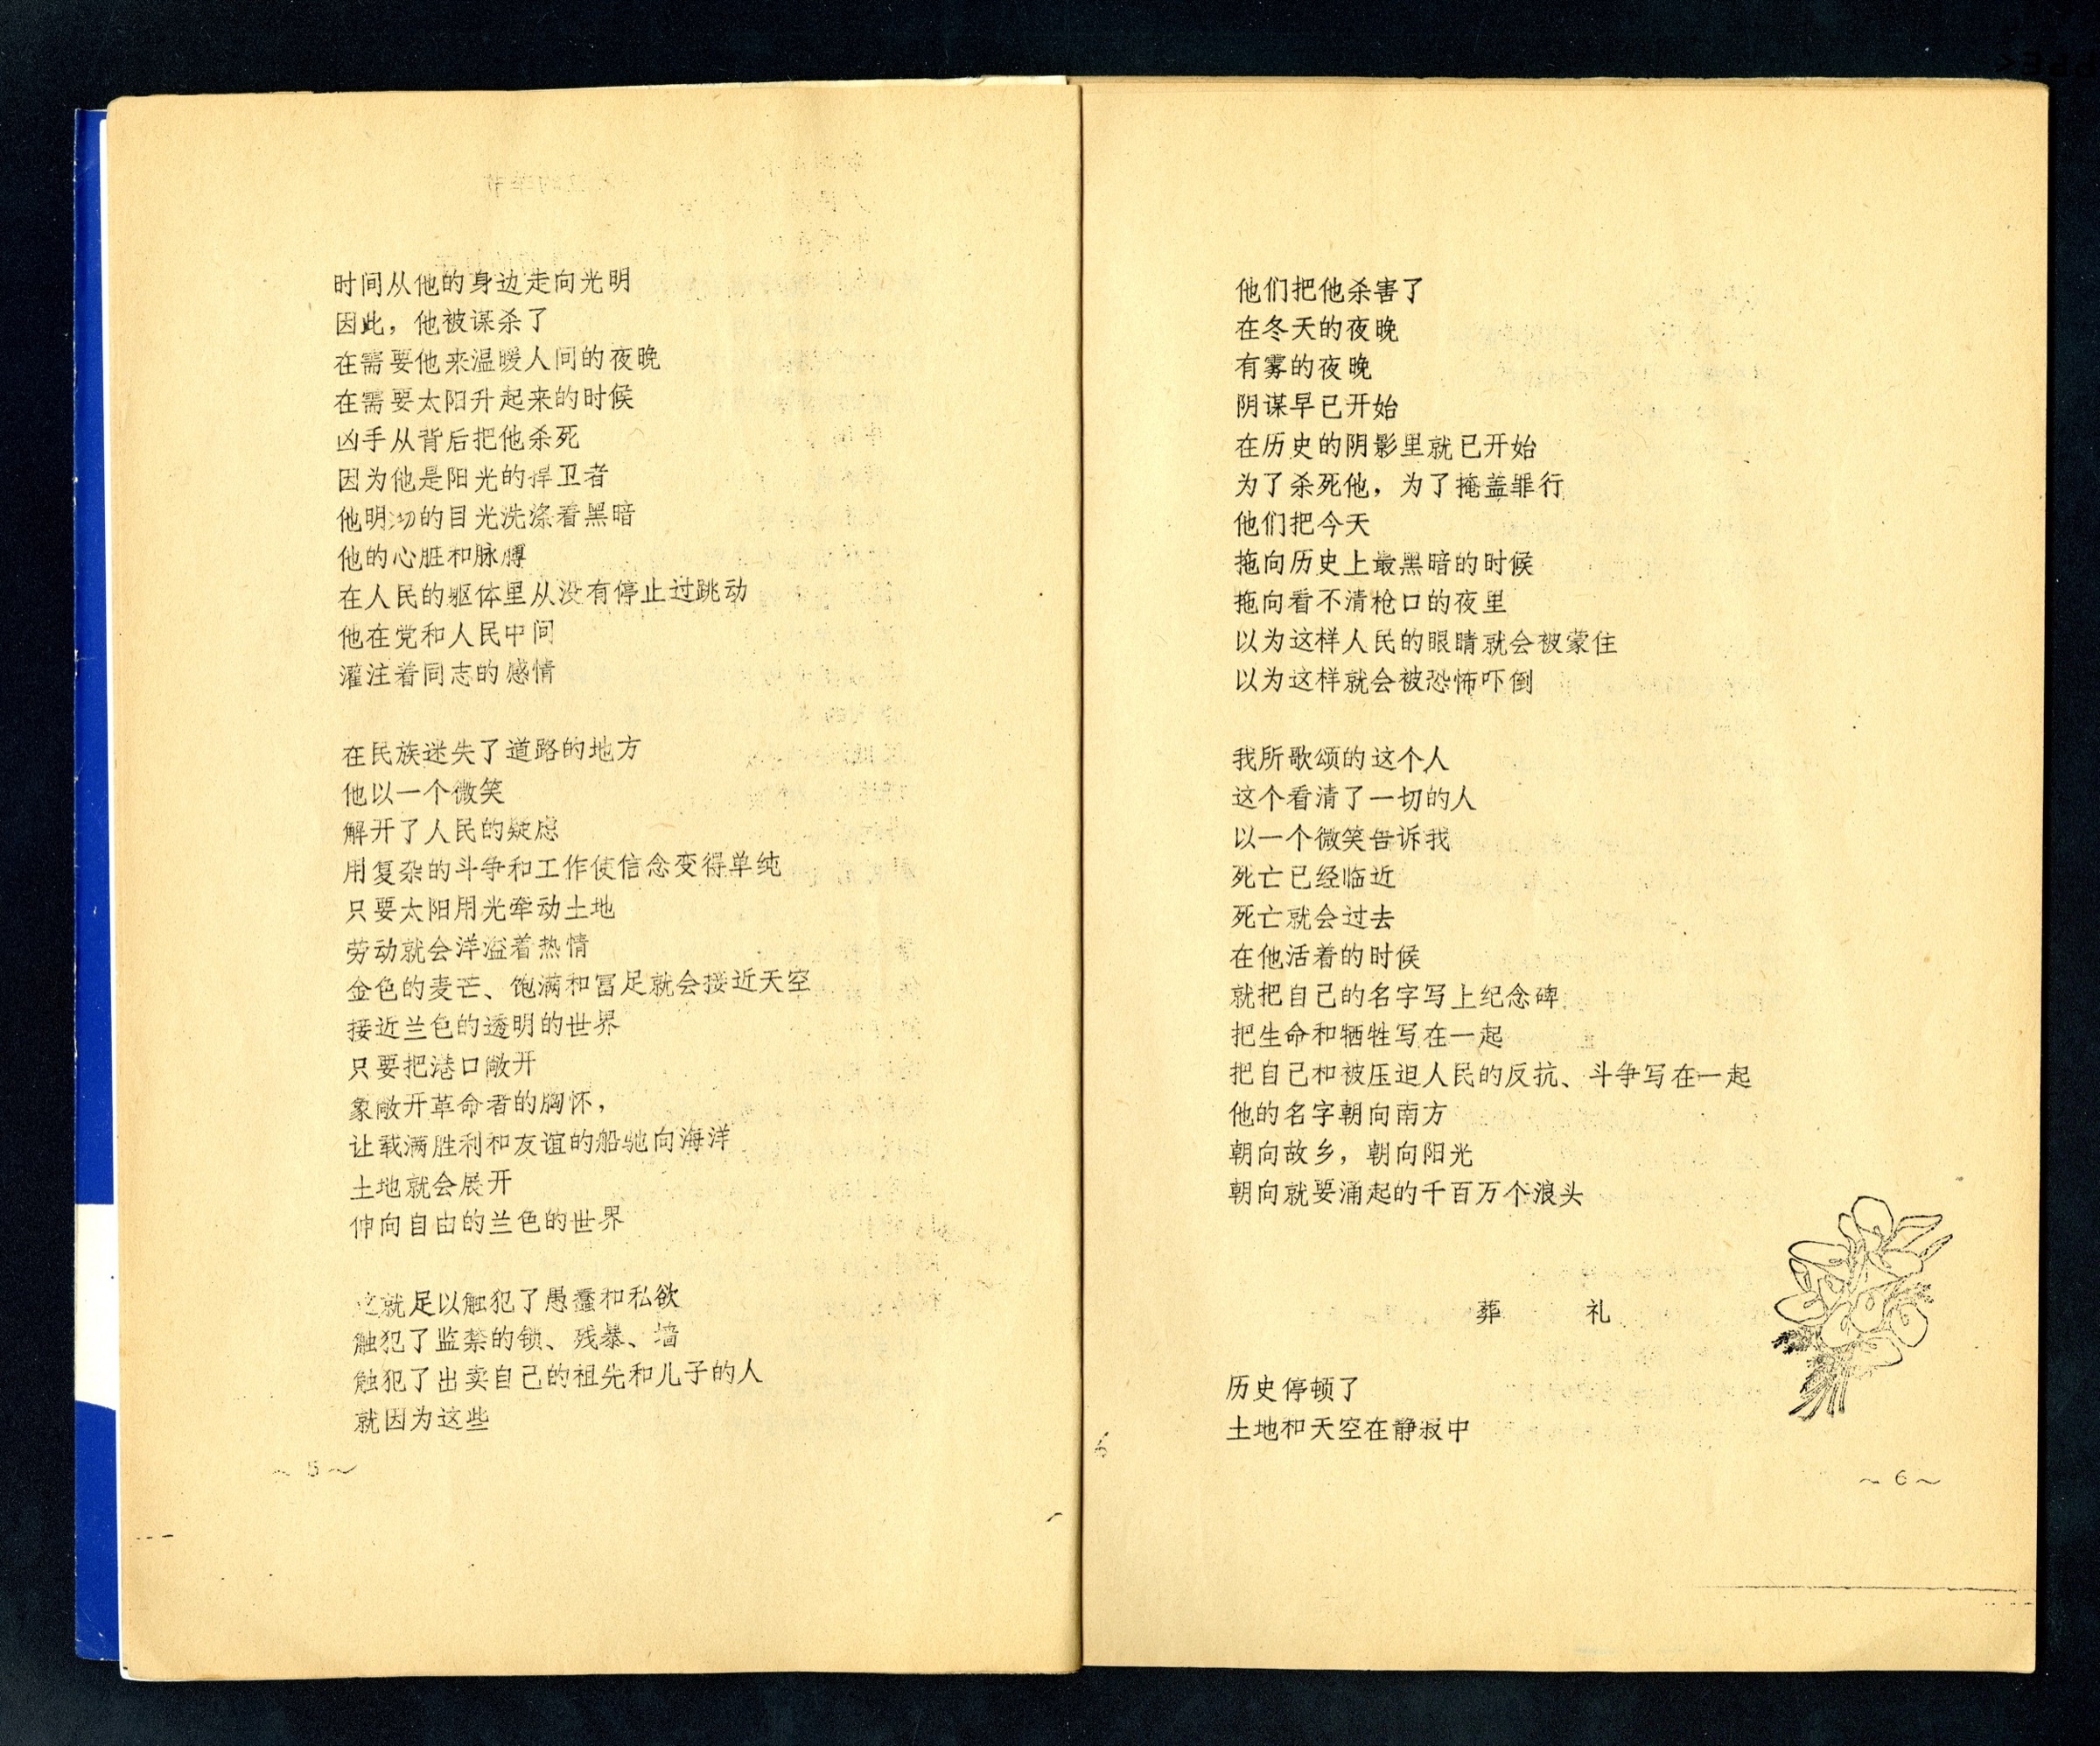 时间从他的身边走向光明
因此，他被谋杀了
在需要他来温暖人间的夜晚
在需要太阳升起来的时候
凶手从背后把他杀死
因为他是阳光的捍卫者
他明沏的目光洗涤着黑暗
他的心脏和脉膊
在人民的躯体里从没有停止过跳动
他在党和人民中间
灌注着同志的感情
在民族迷失了道路的地方
他以一个微笑
解开了人民的疑虑
用复杂的斗争和工作使信念变得单纯
只要太阳用光牵动土地
劳动就会洋溢着热情
金色的麦芒、饱满和富足就会接近天空
接近兰色的透明的世界
只要把港口敞开
象敞开革命者的胸怀，
让载满胜利和友谊的船驰向海洋
土地就会展开
伸向自由的兰色的世界
这就足以触犯了愚蠢和私欲
触犯了监禁的锁、残暴、墙
触犯了出卖自己的祖先和儿子的人
就因为这些
～5～
他们把他杀害了
在冬天的夜晚
有雾的夜晚
阴谋早已开始
在历史的阴影里就已开始
为了杀死他，为了掩盖罪行
他们把今天
拖向历史上最黑暗的时候
拖向看不清枪口的夜里
以为这样人民的眼睛就会被蒙住
以为这样就会被恐怖吓倒
我所歌颂的这个人
这个看清了一切的人
以一个微笑告诉我
死亡已经临近
死亡就会过去
在他活着的时候
就把自己的名字写上纪念碑
把生命和牺牲写在一起
把自己和被压迫人民的反抗、斗争写在一起
他的名字朝向南方
朝向故乡，朝向阳光
朝向就要涌起的千百万个浪头
葬 礼
历史停顿了
土地和天空在静寂中
～6～